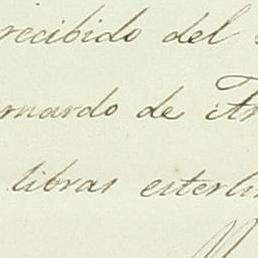 recibido del
rnardo de Ar
libras esterli